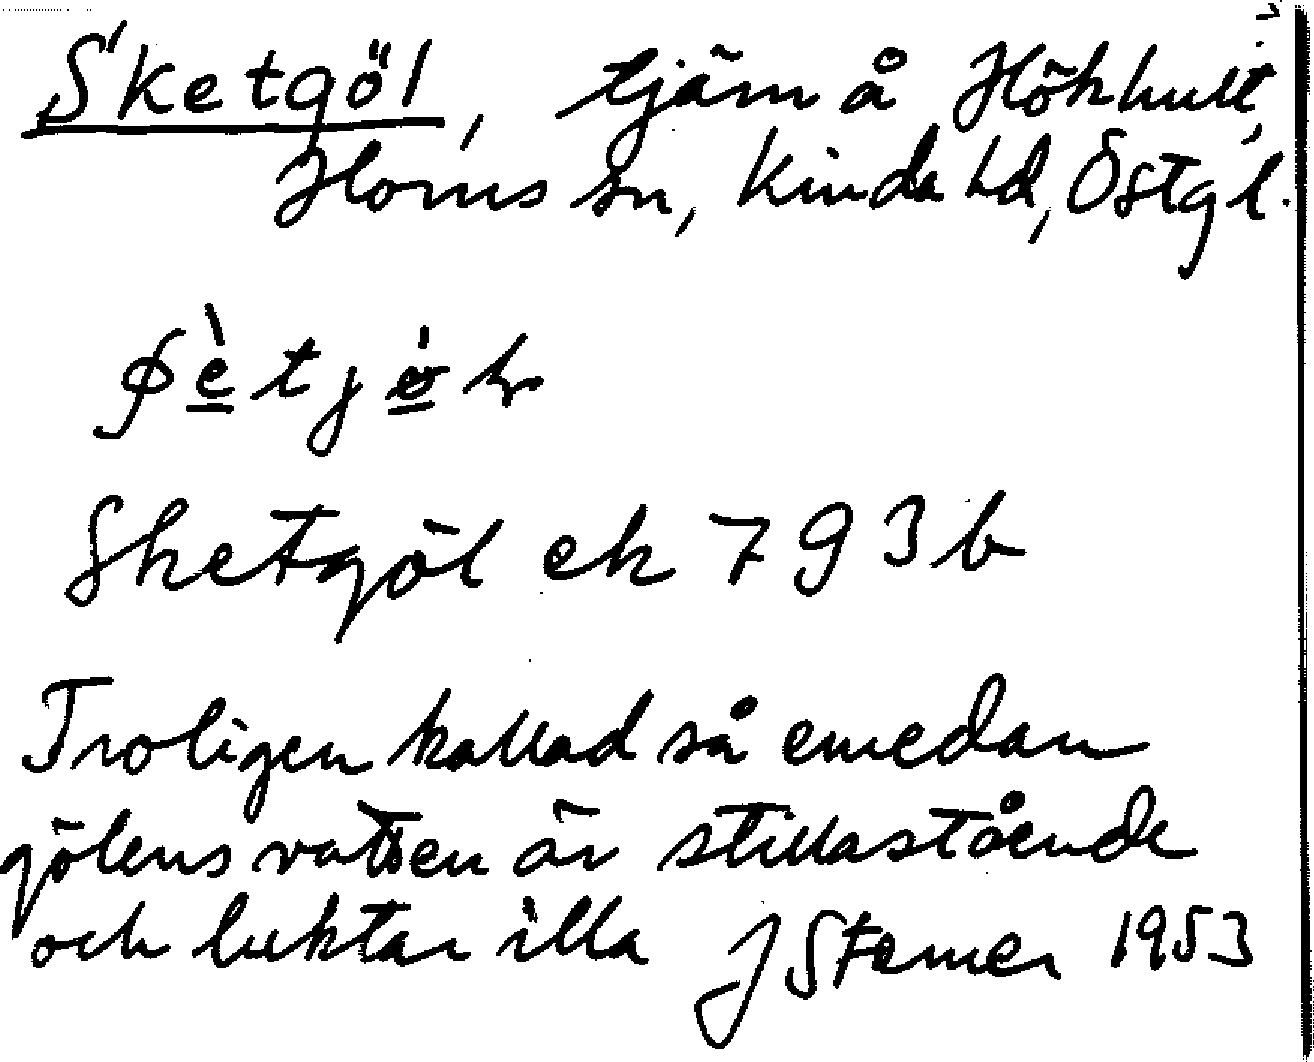 Sketgöl, tjärn å Hökhult,
Horns sn, Kinda hd, Östgl.
Sketgöl ek 793b
Troligen kallad så emedan
gölens vatten är stillastående
och luktar illa J Sterner 1953